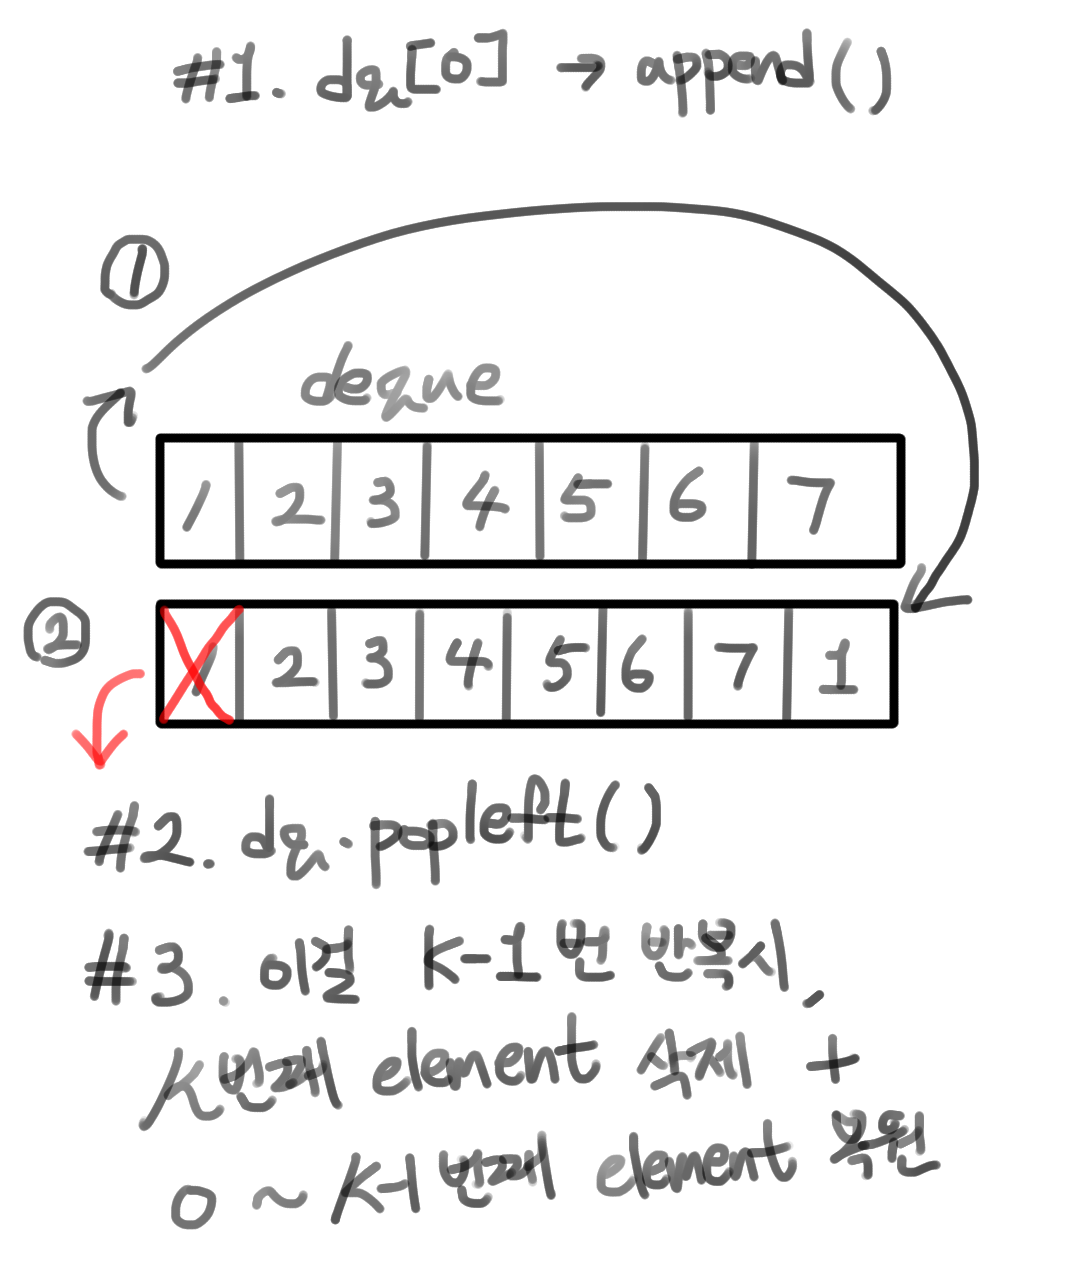 #1. dq[0] → append()
①
deque
1 2 3 4 5 6 7
②
1 2 3 4 5 6 7 1
#2. dq.popleft()
#3. 이걸 K-1번 반복시,
K번째 element 삭제 +
0 ~ K-1번째 element 복원